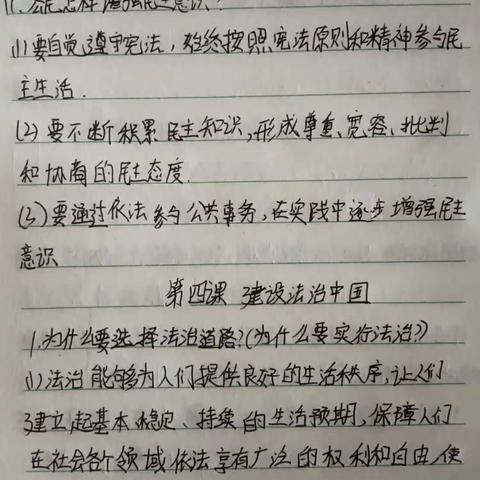 11. 公民怎样增强民主意识?
(1)要自觉遵守宪法,始终按照宪法原则和精神参与民
主生活.
(2)要不断积累民主知识,形成尊重、宽容、批判
和协商的民主态度.
(3)要通过依法参与公共事务,在实践中逐步增强民主
意识
第四课 建设法治中国
1.为什么要选择法治道路?(为什么要实行法治?)
(1)法治能够为人们提供良好的生活秩序,让人们
建立起基本、稳定、持续的生活预期,保障人们
在社会各个领域依法享有广泛的权利和自由,使